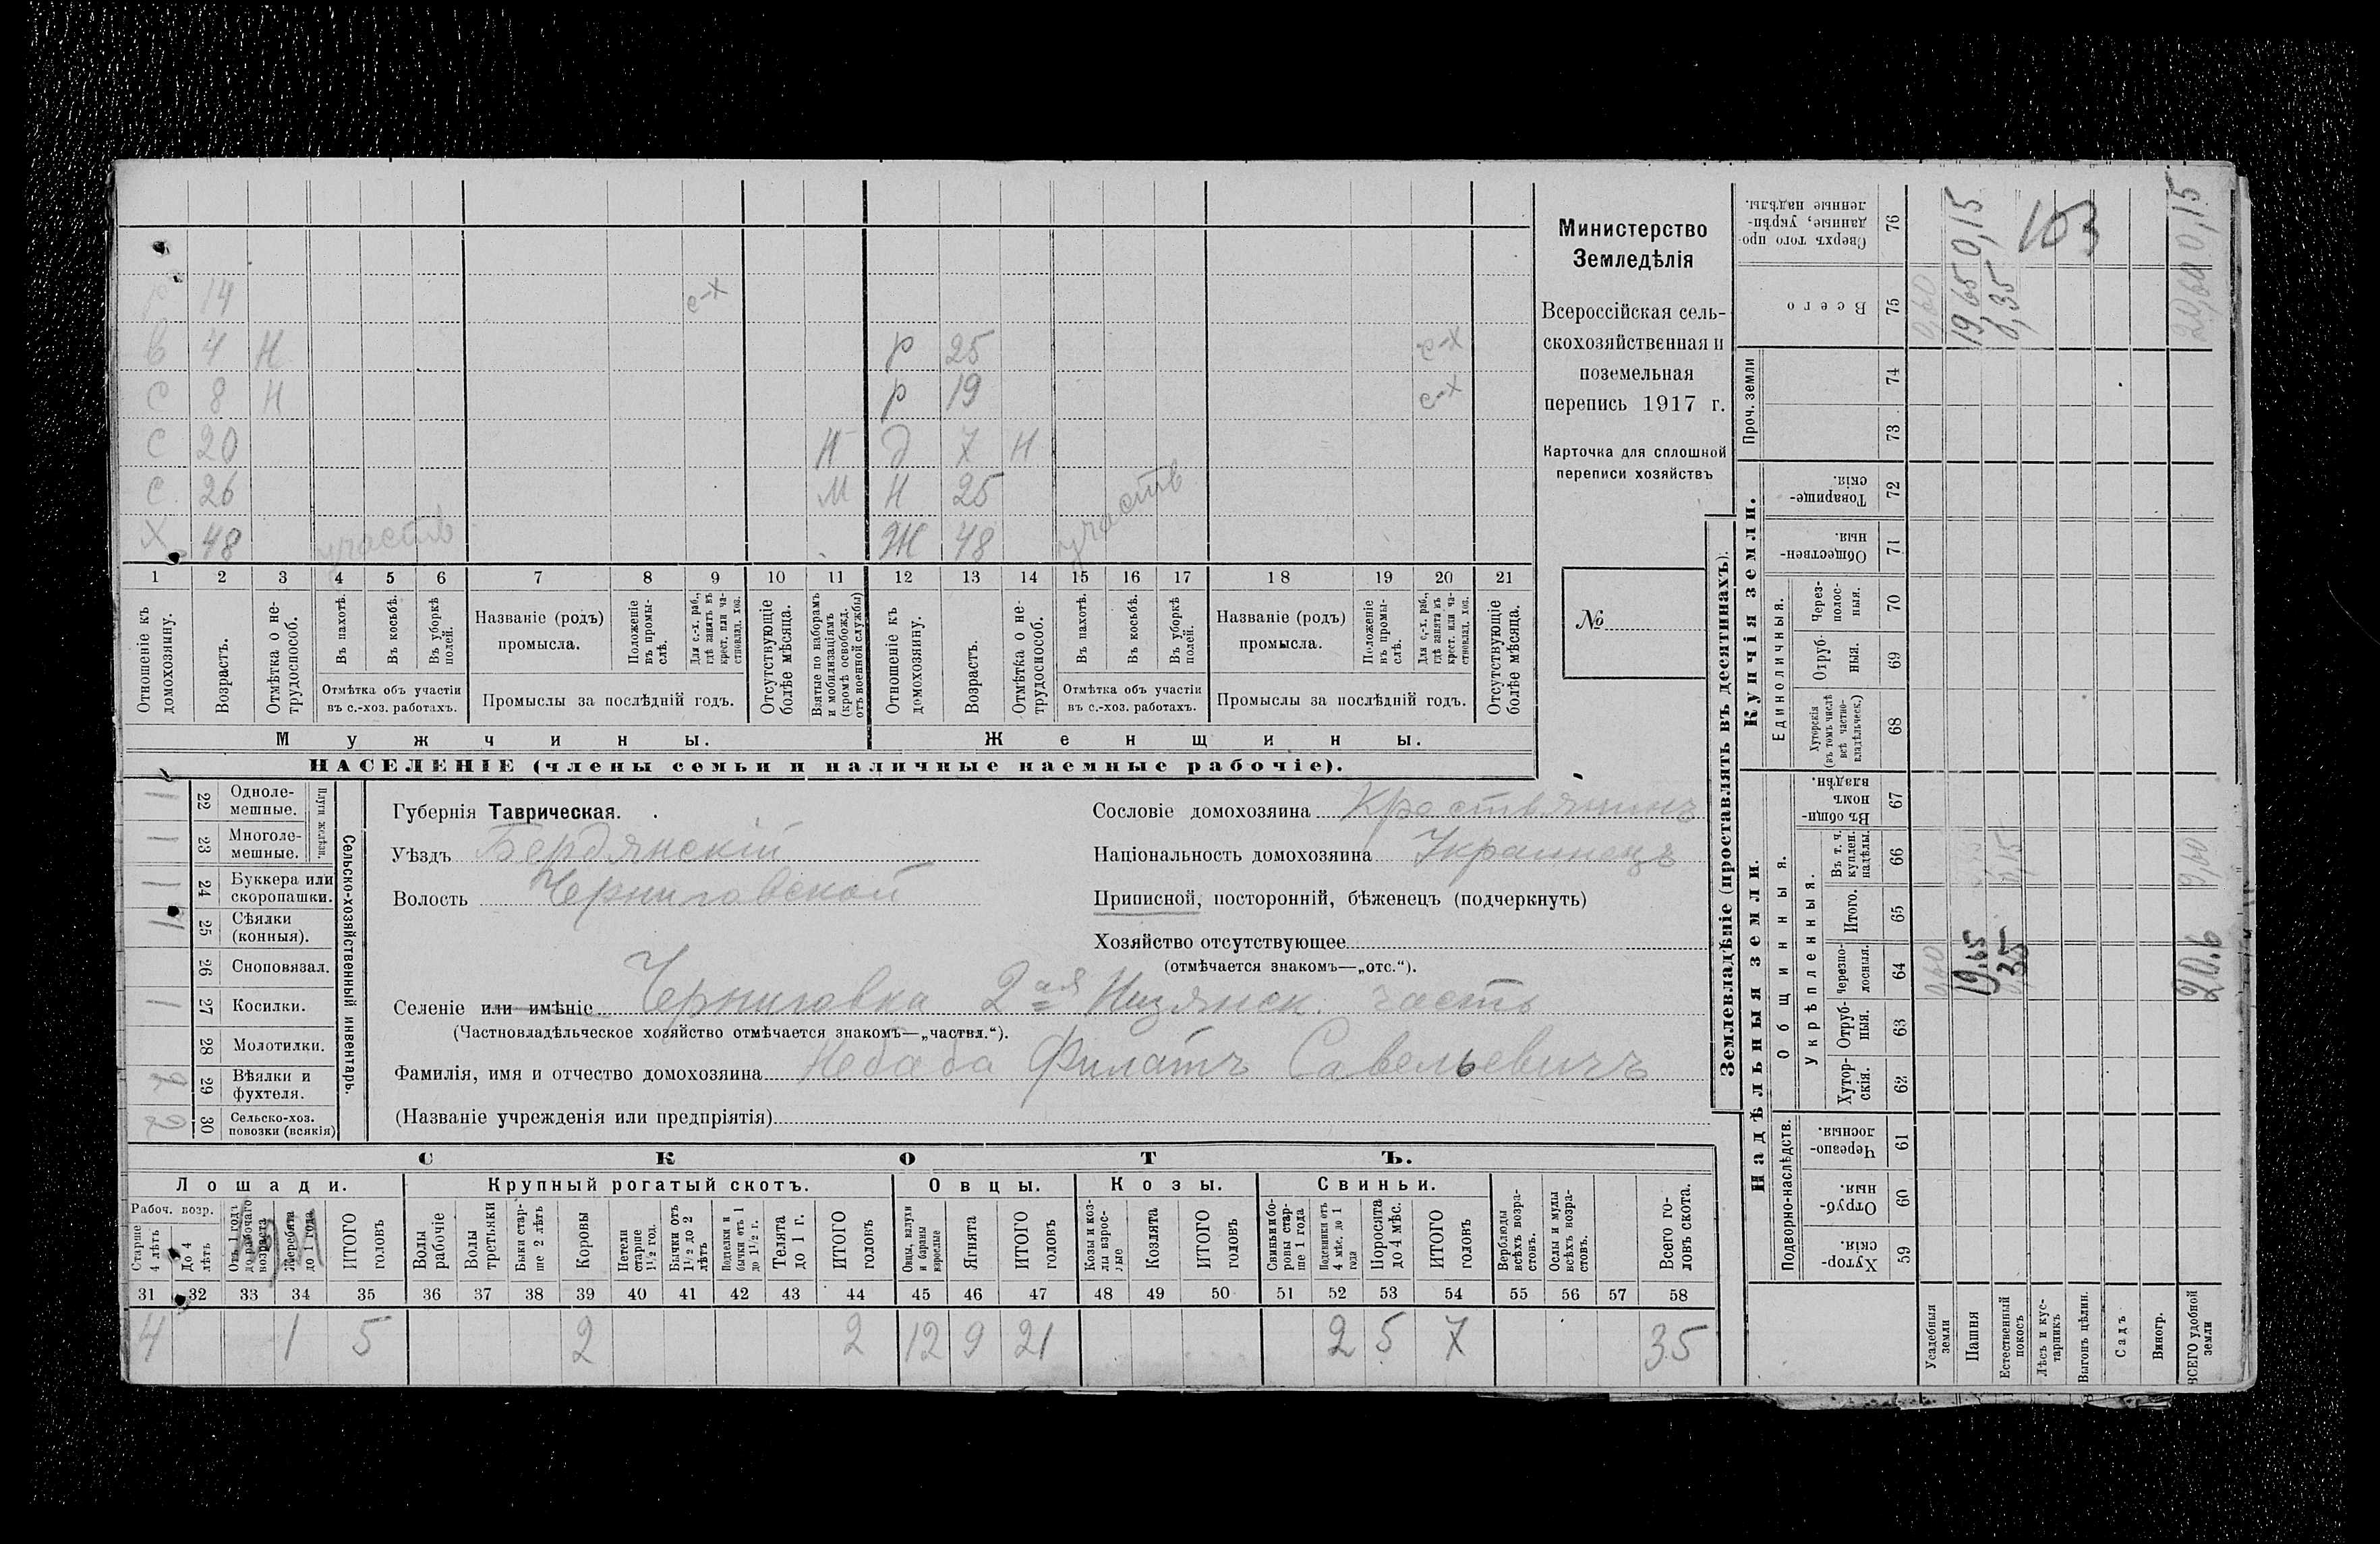 Министерство
Земледѣлія
Всероссійская сель-
скохозяйственная и
поземельная
перепись 1917 г.
Карточка для сплошной
переписи хозяйствъ
№
14 с-х
4 Н р 25 с-х
С 8 Н р 19 с-х
С 20 Н д 7 Н
С 26 М Н 25
Х 48 участв Ж 48 участв
1 2 3 4 5 6 7 8 9 10 11 12 13 14 15 16 17 18 19 20 21
Отношеніе къ домохозяину.
Возрастъ.
Отмѣтка о не-трудоспособ.
Въ пахотѣ.
Въ косьбѣ.
Въ уборкѣ полей.
Отмѣтка объ участіи
въ с.-хоз. работахъ.
Названіе (родъ)
промысла.
Положеніе въ промы-слѣ.
Для с.-х. раб., гдѣ занятъ въ крест. или ча-стновлад. хоз.
Промыслы за послѣдній годъ.
Отсутствующіе болѣе мѣсяца.
Взятые по наборамъ и мобилизаціямъ (кромѣ освобожд. отъ военной службы)
Отношеніе къ домохозяину.
Возрастъ.
Отмѣтка о не-трудоспособ.
Въ пахотѣ.
Въ косьбѣ.
Въ уборкѣ полей.
Отмѣтка объ участіи
въ с.-хоз. работахъ.
Названіе (родъ)
промысла.
Положеніе въ промы-слѣ.
Для с.-х. раб., гдѣ занята въ крест. или ча-стновлад. хоз.
Промыслы за послѣдній годъ.
Отсутствующіе болѣе мѣсяца.
Мужчины. Женщины.
НАСЕЛЕНІЕ (члены семьи и наличные наемные рабочіе).
Сельско-хозяйственный инвентарь.
Плуги желѣзн.
1 22 Одноле-мешные.
1 23 Многоле-мешные.
1 24 Буккера или скоропашки.
1 25 Сѣялки (конныя).
26 Сноповязал.
1 27 Косилки.
28 Молотилки.
29 Вѣялки и фухтеля.
2 30 Сельско-хоз. повозки (всякія)
Губернія Таврическая.
Уѣздъ Бердянскій
Волость Черниговской
Сословіе домохозяина Крестьянинъ
Національность домохозяина Украинецъ
Приписной, посторонній, бѣженецъ (подчеркнуть)
Хозяйство отсутствующее
(отмѣчается знакомъ—„отс.“).
Селеніе или имѣніе Черниговка 2ая Низянск. часть
(Частновладѣльческое хозяйство отмѣчается знакомъ—„частвл.“).
Фамилія, имя и отчество домохозяина Небаба Филатъ Савельевичъ
(Названіе учрежденія или предпріятія)
СКОТЪ.
Лошади. Крупный рогатый скотъ. Овцы. Козы. Свиньи.
Рабоч. возр.
Старше 4 лѣтъ
До 4 лѣтъ
Отъ 1 года до рабочаго возраста
Жеребята до 1 года
ИТОГО головъ
Волы рабочіе
Волы третьяки
Быки стар-ше 2 лѣтъ
Коровы
Нетели старше 1½ год.
Бычки отъ 1½ до 2 лѣтъ
Подтелки и бычки отъ 1 до 1½ г.
Телята до 1 г.
ИТОГО головъ
Овцы, валухи и бараны взрослые
Ягнята
ИТОГО головъ
Козы и коз-лы взрос-лые
Козлята
ИТОГО головъ
Свиньи и бо-ровы стар-ше 1 года
Подсвинки отъ 4 мѣс. до 1 года
Поросята до 4 мѣс.
ИТОГО головъ
Верблюды всѣхъ возра-стовъ.
Ослы и мулы всѣхъ возра-стовъ.
Всего го-ловъ скота.
31 32 33 34 35 36 37 38 39 40 41 42 43 44 45 46 47 48 49 50 51 52 53 54 55 56 57 58
4 1 5 2 2 12 9 21 2 5 7 35
Землевладѣніе (проставлять въ десятинахъ).
Надѣльныя земли. Купчія земли.
Подворно-наслѣдств.
Общинныя.
Укрѣпленныя.
Единоличныя.
Проч. земли
Хутор-скія. 59
Отруб-ныя. 60
Черезпо-лосныя. 61
Хутор-скія. 62
Отруб-ныя. 63
Черезпо-лосныя. 64
Итого. 65
Въ т. ч. куплен. надѣлы. 66
Въ общин-номъ владѣн. 67
Хуторскія (въ томъ числѣ всѣ частно-владѣльческ.) 68
Отруб-ныя. 69
Через-полос-ныя. 70
Обществен-ныя. 71
Товарище-скія. 72
73
74
Всего 75
Сверхъ того про-данные, укрѣп-ленные надѣлы. 76
Усадебныя земли 0,60 0,60
Пашня 19,65 19,65 0,15
Естественный покосъ 0,35 0,15 0,35
Лѣсъ и кус-тарникъ
Выгонъ цѣлин.
Садъ
Виногр.
ВСЕГО удобной земли 20.6 20,60 0,15
103